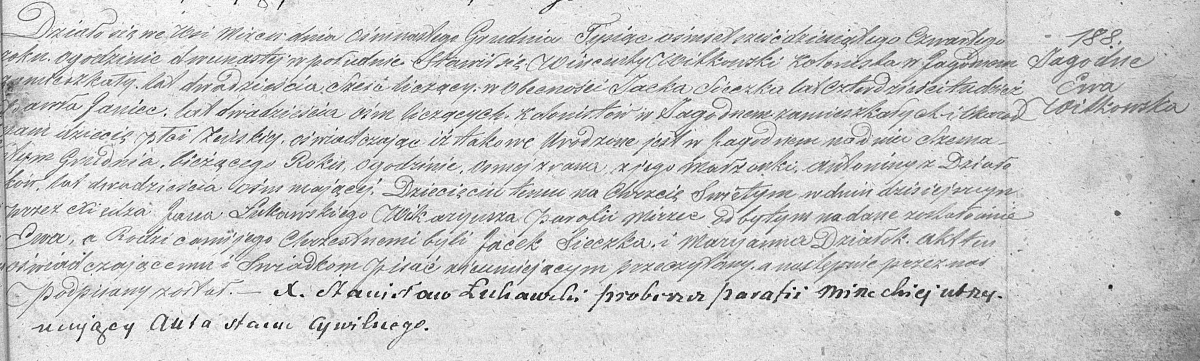 188.
Jagodne
Ewa
Witkowska
Działo się we Wsi Mircu dnia Ośmnastego Grudnia Tysiąc ośmset sześćdziesiątego Czwartego
roku, o godzinie dwunasty w południe Stawił się Wincenty Witkowski Kolonista w Jagodnem
zamieszkały, lat dwadzieścia sześć liczący, w obecności Jacka Sieczka lat czterdzieści tudzież
Jana Janiec, lat dwadzieścia ośm liczących, Kolonistów w Jagodnem zamieszkałych i okazał
nam dziecię płci Żeńskiey, oświadczając iż takowe Urodzone jest w Jagodnem na dniu Szesna-
stym Grudnia, bieżącego Roku, o godzinie z rana, z jego Małżonki, Antoniny z Działo-
ków, lat dwadzieścia ośm mającej. Dziecięciu temu na Chrzcie Świętym w dniu dzisiejszym
przez Xiędza Jana Lukawskiego Wikaryusza parafii Mirzec odbytym nadane zostało imie
Ewa, a Rodzicami jego Chrzestnemi byli Jacek Sieczka, i Maryanna Działok. Akt ten
oświadczającemu i Świadkom pisać nieumiejącym przeczytany, a następnie przez nas
podpisany został. — X. Stanisław Lukawski proboszcz parafii Mireckiej utrzy-
mujący Akta stanu cywilnego.